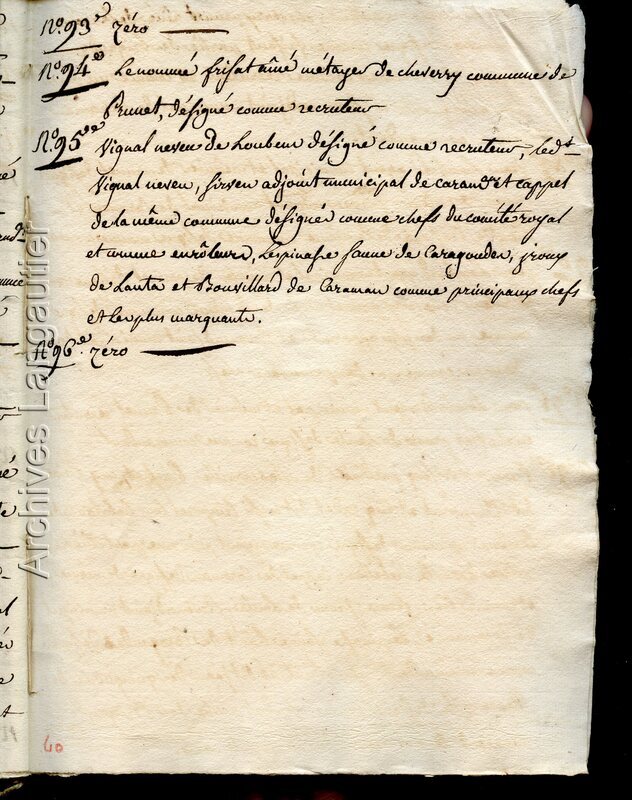 N.º 93.e zéro
N.º 94.e Le nommé frisat ainé métayer de cheverry commune de
Prunet, désigné comme recruteur
N.º 95.e Vignal neveu de Loubens désigné comme recruteur, led.t
Vignal neveu, sirven adjoint municipal de caraman et cappel
de la même commune désignés comme chefs du comité royal
et comme enrôleurs, Lespinasse faune de Caragoudes, jroux
de Lanta et Bousillard de Caraman comme principaux chefs
et les plus marquants.
N.º 96.e zéro
60
Archives Langautier